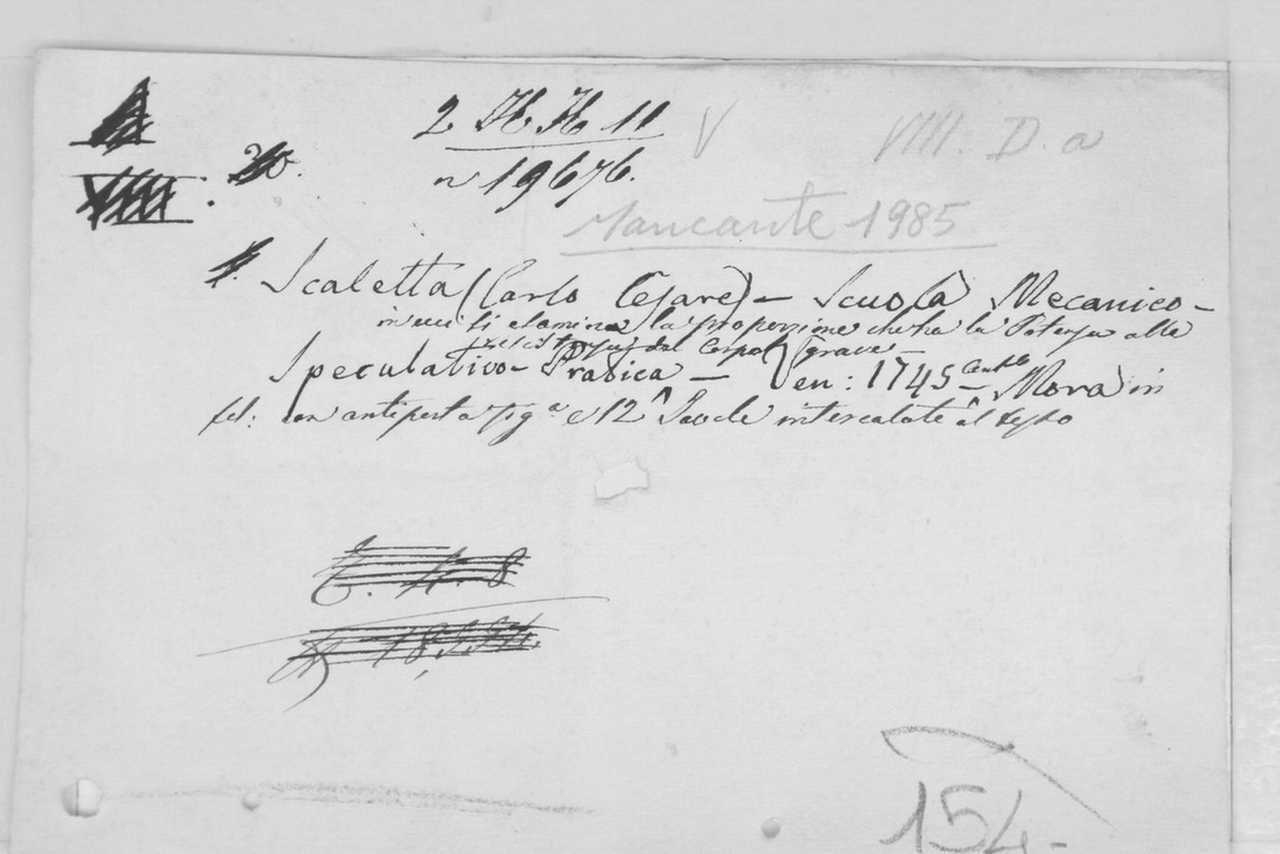 2 H H 11 V VIII. D. a
n 19676.
Mancante 1985
Scaletta (Carlo Cesare) - Scuola Mecanico-
in cui si esamina la proporzione che ha la Potenza alla
resistenza del Corpo grave -
Speculativo-Pratica - Ven: 1745 - Mora in
fol: con antiporta fig.a e 12 Tavole intercalate al testo
154-